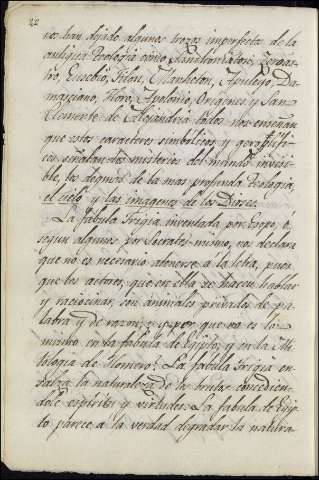 22
nos han dejado algunos trozos imperfectos de la
antigua Teologia como Sanchoniaton, Zoroas-
tro, Eusebio, Filon, Manethon, Apuleyo, Da-
masciano, Horo, Apolonio, Origenes y San
Clemente de Alejandria todos nos enseñan
que estos caracteres simbolicos y geroglifi-
cos señalan los misterios del mundo invisi-
ble, los dogmas de la mas profunda Teologia,
el cielo y las imagenes de los Dioses.
La fabula Frigia inventada por Esopo, o
segun algunos por Socrates mismo, nos declara
que no es necesario atenerse à la letra, pues
que los actores, que en ella se hacen hablar
y raciocinar son animales privados de pa-
labra y de razon; y por que no es lo
mismo en la fabula de Egipto, y en la Mi-
tologia de Homero? La fabula Frigia en-
salza la naturaleza de los brutos concedien-
doles espiritu y virtudes. La fabula de Egip-
to parece à la verdad degradar la natura-